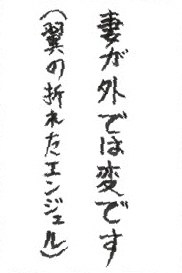 妻が外では変です
(翼の折れたエンジェル)